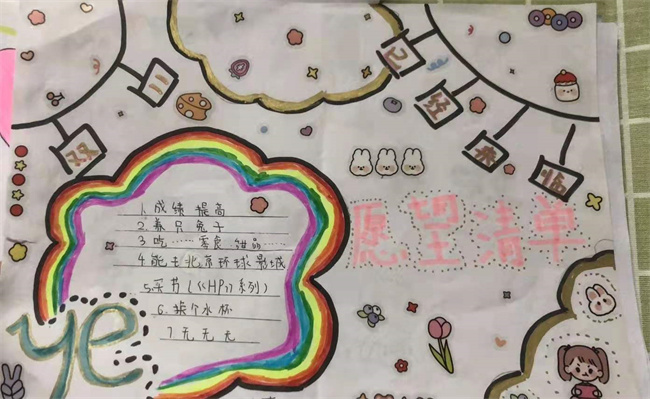 双十二
已经来临
愿望清单
1. 成绩提高
2. 养只兔子
3. 吃……零食、甜品……
4. 能去北京环球影城
5. 买书(《HP》系列)
6. 换个水杯
7 无无无
ye